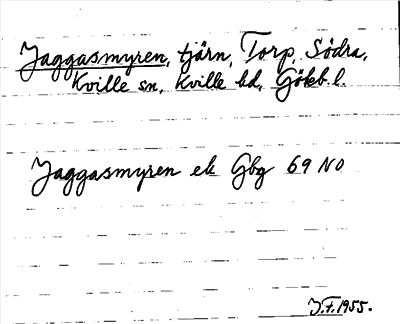 Jaggasmyren, tjärn, Torp, Södra,
Kville sn, Kville hd, Göteb. l.
Jaggasmyren ek Gbg 69 NO
J.F. 1955.